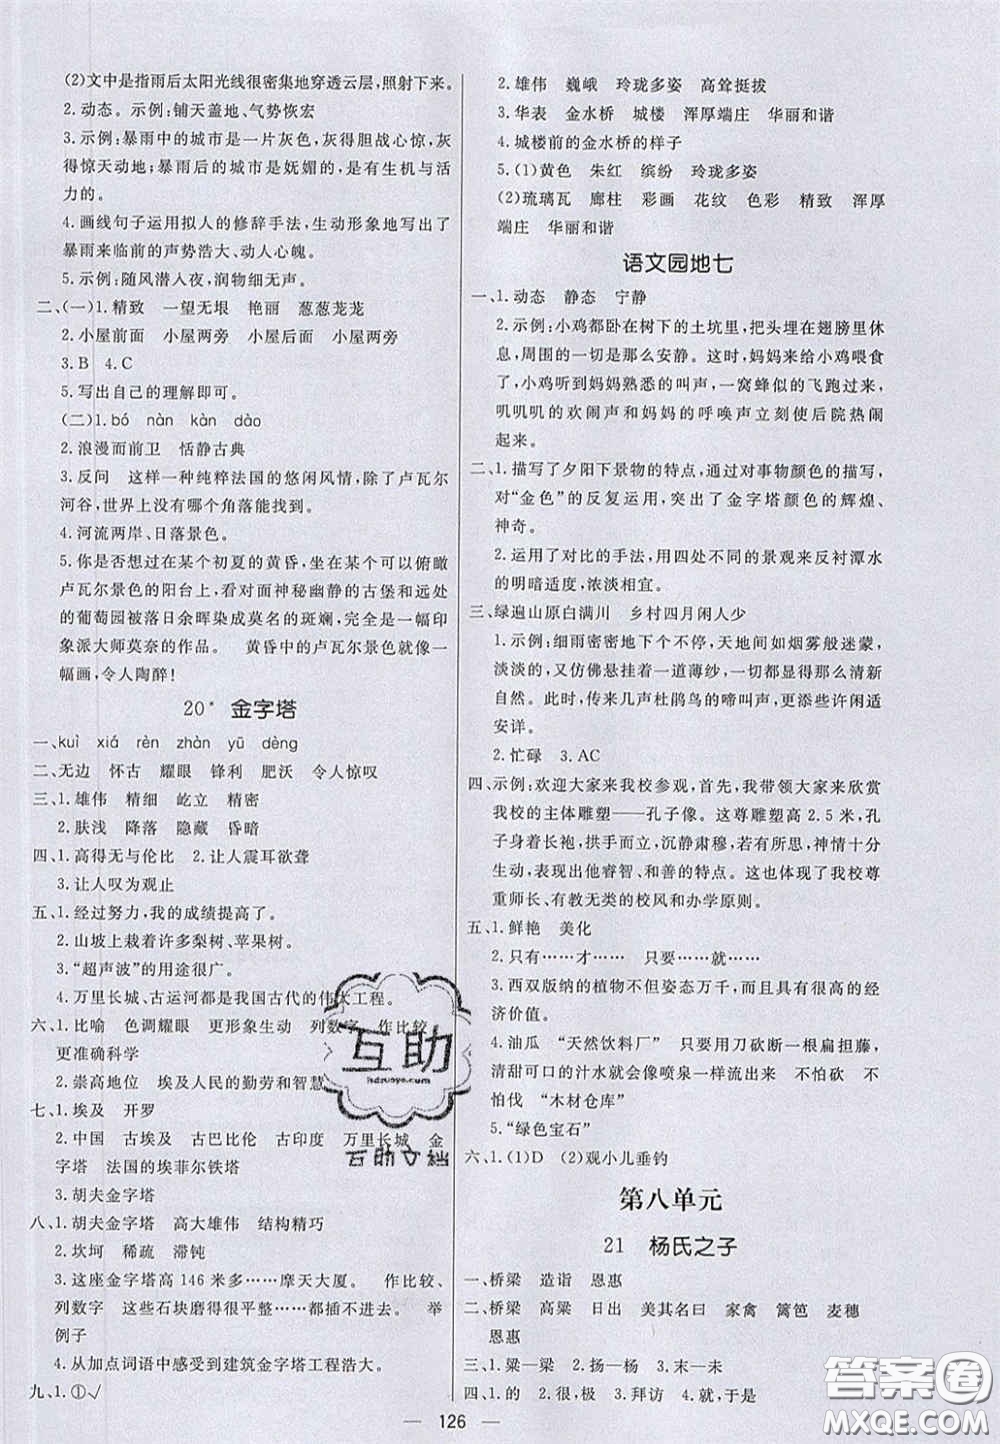 (2)文中是指雨后太阳光线很密集地穿透云层,照射下来。
2.动态。示例:铺天盖地、气势恢宏
3.示例:暴雨中的城市是一片灰色,灰得胆战心惊,灰
得惊天动地;暴雨后的城市是妩媚的,是有生机与活
力的。
4.画线句子运用拟人的修辞手法,生动形象地写出了
暴雨来临前的声势浩大、动人心魄。
5.示例:随风潜入夜,润物细无声。
二、(一)1.精致 一望无垠 艳丽 葱葱茏茏
2.小屋前面 小屋两旁 小屋后面 小屋两旁
3.B 4.C
5.写出自己的理解即可。
(二)1.bó nàn kàn dào
2.浪漫而前卫 恬静古典
3.反问 这样一种纯粹法国的悠闲风情,除了卢瓦尔
河谷,世界上没有哪个角落可以找到。
4.河流两岸、日落景色。
5.你是否想过在某个初夏的黄昏,坐在某个可以俯瞰
卢瓦尔景色的阳台上,看对面神秘幽静的古堡和成熟
的葡萄园被落日余晖染成莫名的斑斓,完全是一幅印
象派大师莫奈的作品。 黄昏中的卢瓦尔景色就像一
幅画,令人陶醉!
20* 金字塔
一、kuì xiá rèn zhàn yū dèng
二、无边 怀古 耀眼 锋利 肥沃 令人惊叹
三、1.雄伟 精细 屹立 精密
2.肤浅 降落 隐藏 昏暗
四、1.高得无与伦比 2.让人震耳欲聋
3.让人叹为观止
五、1.经过努力,我的成绩提高了。
2.山坡上栽着许多梨树、苹果树。
3.“超声波”的用途很广。
4.万里长城、古运河都是我国古代的伟大工程。
六、1.比喻 色调耀眼 更形象生动 列数字 作比较
更准确科学
2.崇高地位 埃及人民的勤劳和智慧
七、1.埃及 开罗
2.中国 古埃及 古巴比伦 古印度 万里长城 金
字塔 法国的埃菲尔铁塔
3.胡夫金字塔
八、1.胡夫金字塔 高大雄伟 结构精巧
2.坎坷 稀疏 滞钝
3.这座金字塔高146米多……摩天大厦。 作比较、
列数字 这些石块磨得很平整……都插不进去。 举
例子
4.从加点词语中感受到建筑金字塔工程浩大。
九、1.①√
2.雄伟 巍峨 玲珑多姿 高耸挺拔
3.华表 金水桥 城楼 浑厚端庄 华丽和谐
4.城楼前的金水桥的样子
5.(1)黄色 朱红 缤纷 玲珑多姿
(2)琉璃瓦 廊柱 彩画 花纹 色彩 精致 浑厚
端庄 华丽和谐
语文园地七
一、1.动态 静态 宁静
2.示例:小鸡都卧在树下的土坑里,把头埋在翅膀里休
息,周围的一切是那么安静。妈妈来给小鸡喂食
了,小鸡听到妈妈熟悉的叫声,一窝蜂似的飞跑过来,
叽叽叽的欢闹声和妈妈的呼唤声立刻使后院热闹
起来。
二、1.描写了夕阳下景物的特点,通过对事物颜色的描写,
对“金色”的反复运用,突出了金字塔颜色的辉煌、
神奇。
2.运用了对比的手法,用四处不同的景观来反衬潭水
的明暗适度,浓淡相宜。
三、绿遍山原白满川 乡村四月闲人少
1.示例:细雨密密地下个不停,天地间如烟雾般迷蒙,
淡淡的,又仿佛悬挂着一道薄纱,一切是那么的清新
自然。此时,传来几声杜鹃鸟的啼叫声,更添些许闲适
安详。
2.忙碌 3.AC
四、示例:欢迎大家来我校参观,首先,我带领大家来欣赏
我校的主体雕塑——孔子像。这尊雕塑高2.5米,孔
子身着长袍,拱手而立,沉静肃穆,若有所思,神情十分
生动,表现出他睿智、和善的特点。这也体现了我校尊
重师长,有教无类的校风和办学原则。
五、1.鲜艳 美化
2.只有……才…… 只要……就……
3.西双版纳的植物不但姿态万千,而且还有很高的经
济价值。
4.油瓜 “天然饮料厂” 只要用刀砍断一根扁担藤,
清甜可口的汁水就会像喷泉一样流出来 不怕砍 不
怕伐 “木材仓库”
5.“绿色宝石”
六、1.(1)D (2)观小儿垂钓
第八单元
21 杨氏之子
一、桥梁 造诣 恩惠
二、桥梁 高粱 日出 美其名曰 家禽 篱笆 麦穗
恩惠
三、1.粱—梁 2.扬—杨 3.末—未
四、1.的 2.很,极 3.拜访 4.就,于是
126
互助
hdzuoye.com
互助文档
答案圈
MXQE.COM